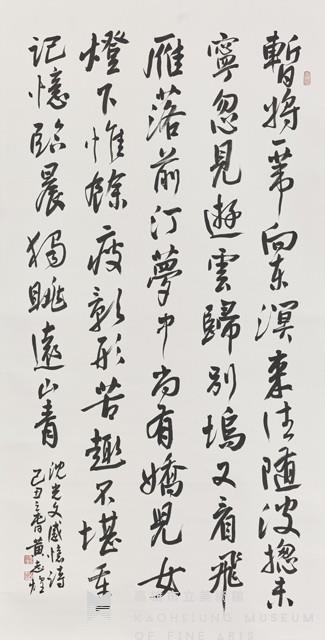 暫將一葦向東溟來往随波總未
寧忽見遊雲歸別塢又看飛
雁落前汀夢中尚有嬌兒女
燈下惟餘瘦影形苦趣不堪重
記憶臨晨獨眺遠山青
沈光文感憶詩
己丑之春黃志煌
高雄市立美術館
KAOHSIUNG MUSEUM
OF FINE ARTS